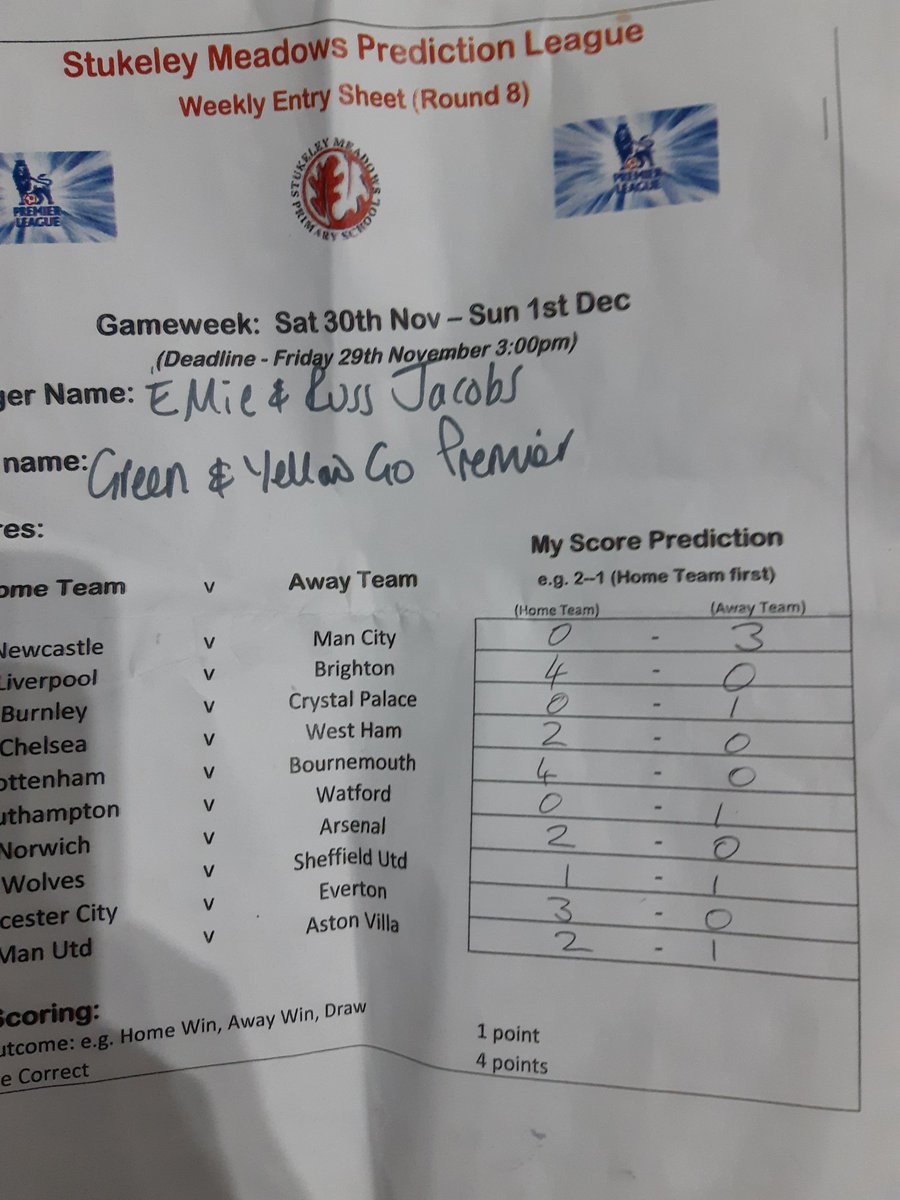 Stukeley Meadows Prediction League
Weekly Entry Sheet (Round 8)
PREMIER LEAGUE
STUKELEY MEADOWS PRIMARY SCHOOL
PREMIER LEAGUE
Gameweek: Sat 30th Nov – Sun 1st Dec
(Deadline - Friday 29th November 3:00pm)
ger Name: EMie & Russ Jacobs
name: Green & Yellow Go Premier
res:
My Score Prediction
ome Team v Away Team e.g. 2--1 (Home Team first)
(Home Team) (Away Team)
Newcastle v Man City 0 - 3
Liverpool v Brighton 4 - 0
Burnley v Crystal Palace 0 - 1
Chelsea v West Ham 2 - 0
ottenham v Bournemouth 4 - 0
uthampton v Watford 0 - 1
Norwich v Arsenal 2 - 0
Wolves v Sheffield Utd 1 - 1
cester City v Everton 3 - 0
Man Utd v Aston Villa 2 - 1
Scoring:
utcome: e.g. Home Win, Away Win, Draw 1 point
e Correct 4 points